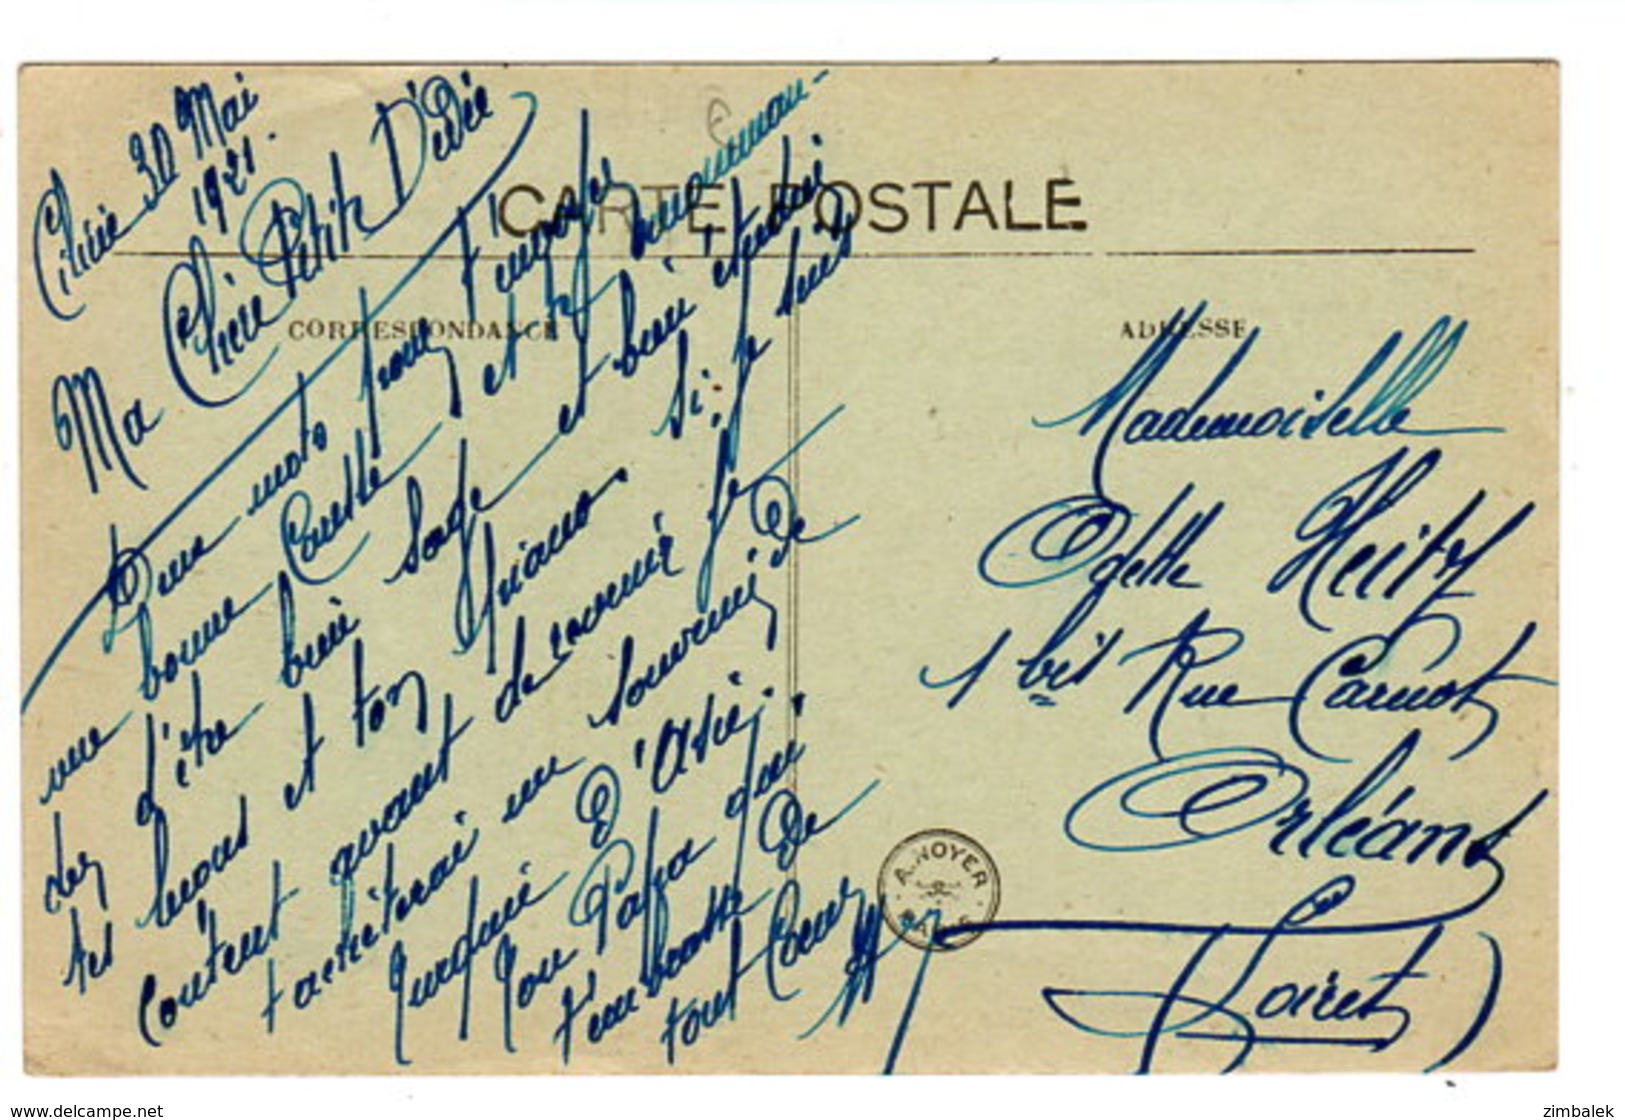 CARTE POSTALE
CORRESPONDANCE
ADRESSE
Cilicie 30 Mai
1921.
Ma Chère Petite Dédée
Deux mots pour t'envoyer
une bonne Caresse et
d'être bien sage et bien étudier
tes et ton piano. Si je suis
content avant de revenir je
t'achèterai un souvenir de
d'Asie.
Ton Papa qui
t'embrasse de
tout Coeur
Mademoiselle
Odette Heitz
1 bis Rue Carnot
Orléans
Loiret)
A. NOYER
PARIS
www.delcampe.net
zimbalek